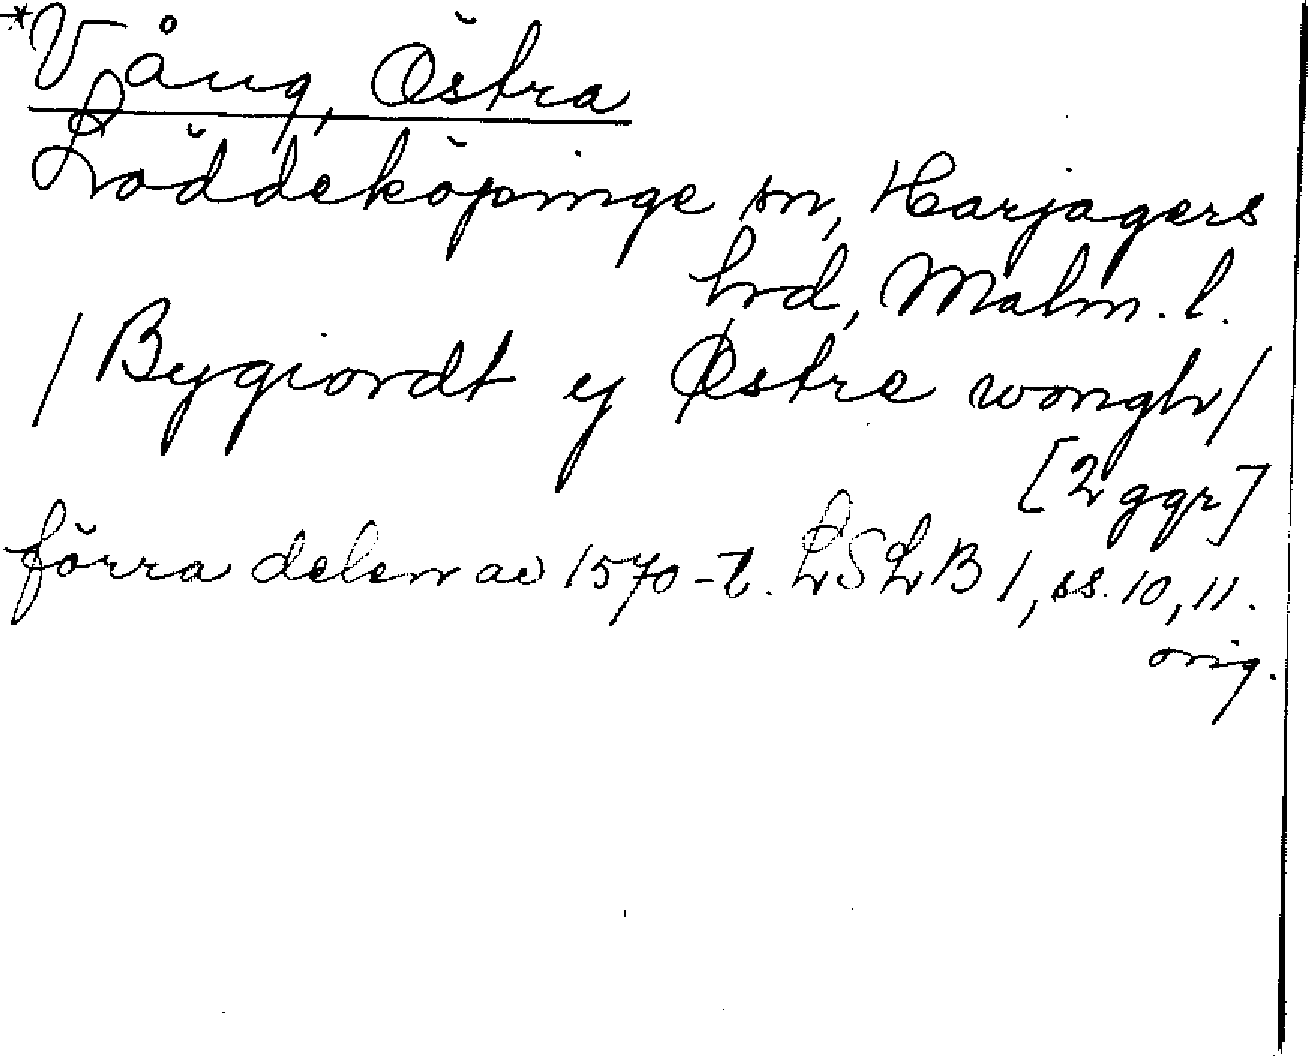 *Vång, Östra
Löddeköpinge sn, Harjagers
hrd, Malm. l.
/ Bygiordt ej Østre wongh /
[2 ggr]
förra delen av 1570-t. LSLB 1, ss. 10, 11.
orig.